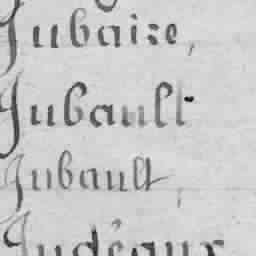 Jubaire,
Jubault
Jubault,
Judéaux